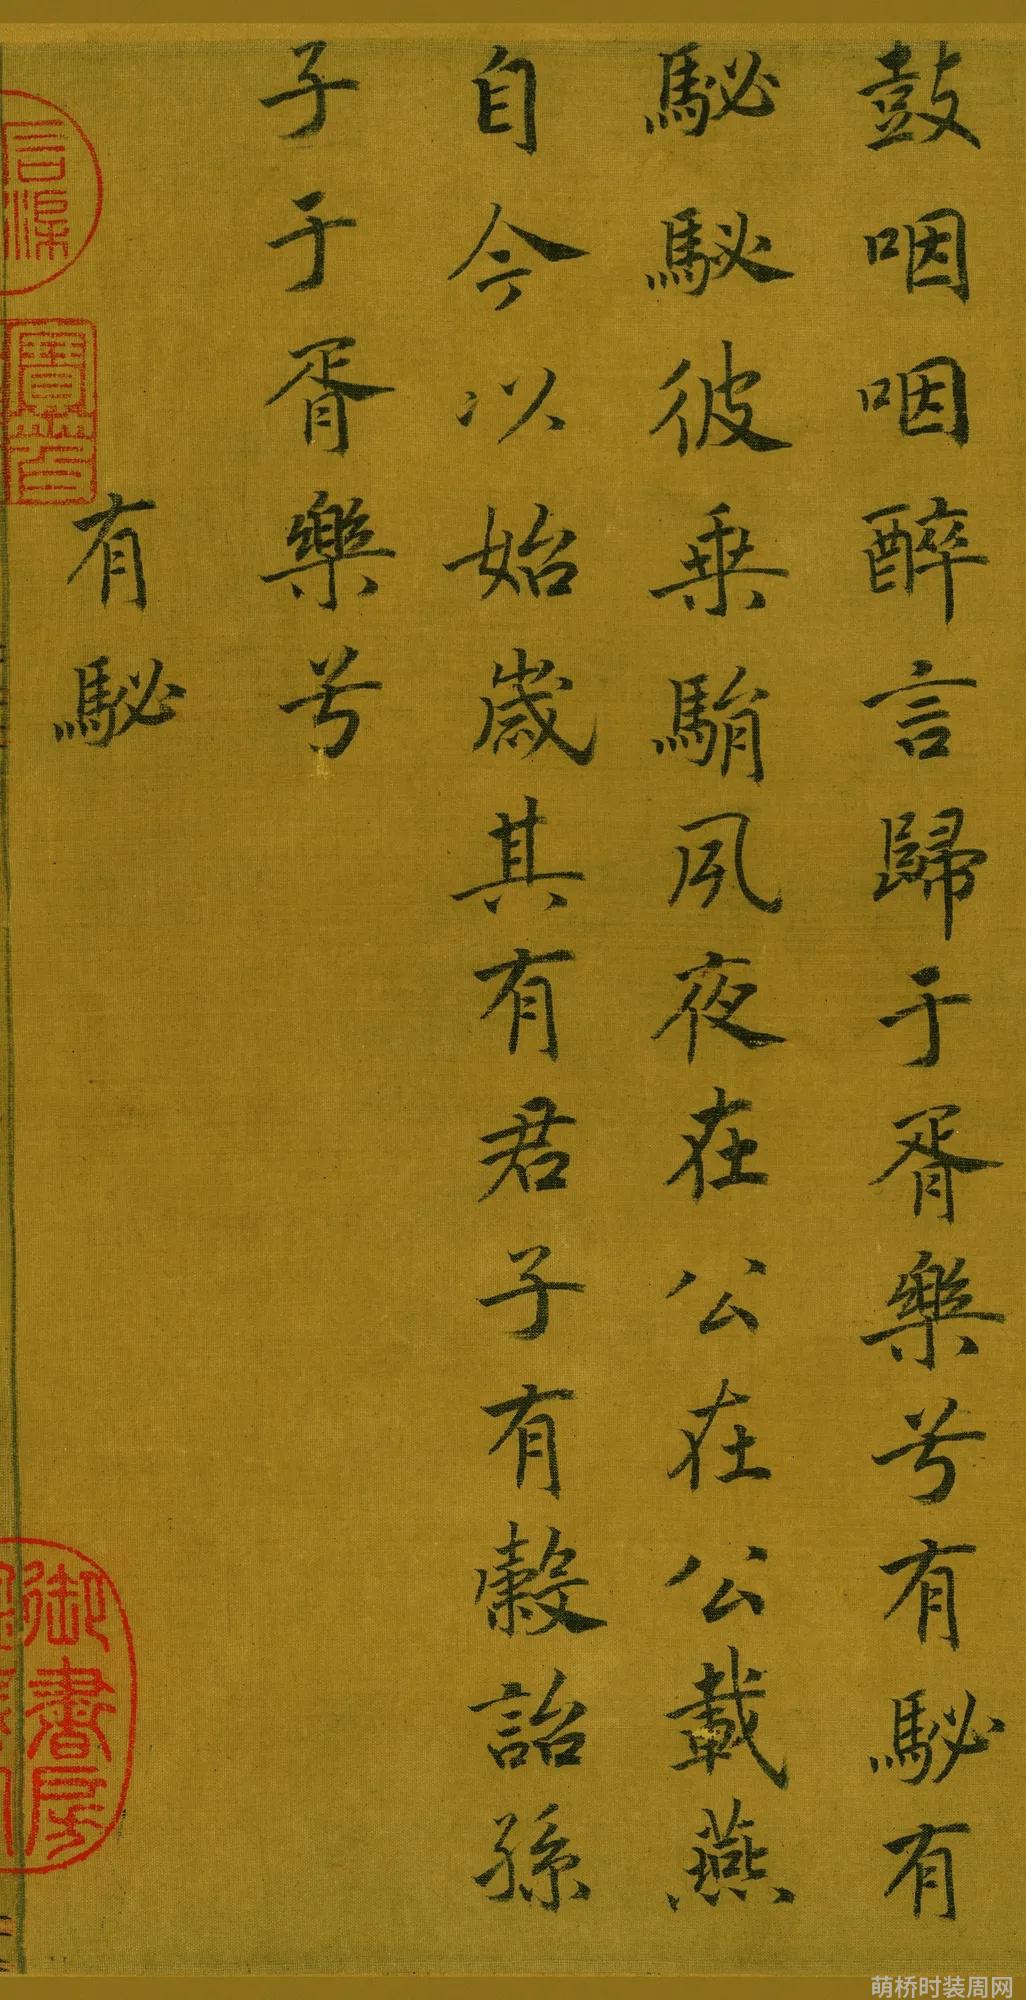 鼓咽咽醉言歸于胥樂兮有駜有
駜駜彼乗駽夙夜在公在公載燕
自今以始歲其有君子有穀詒孫
子于胥樂兮
有駜
石渠
寶笈
御書房
萌桥时装周网